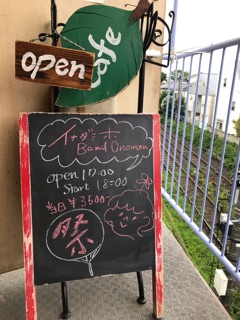 Cafe
open
イナダミホ
Band Oneman
open 17:00
Start 18:00
当日 ¥3500
祭